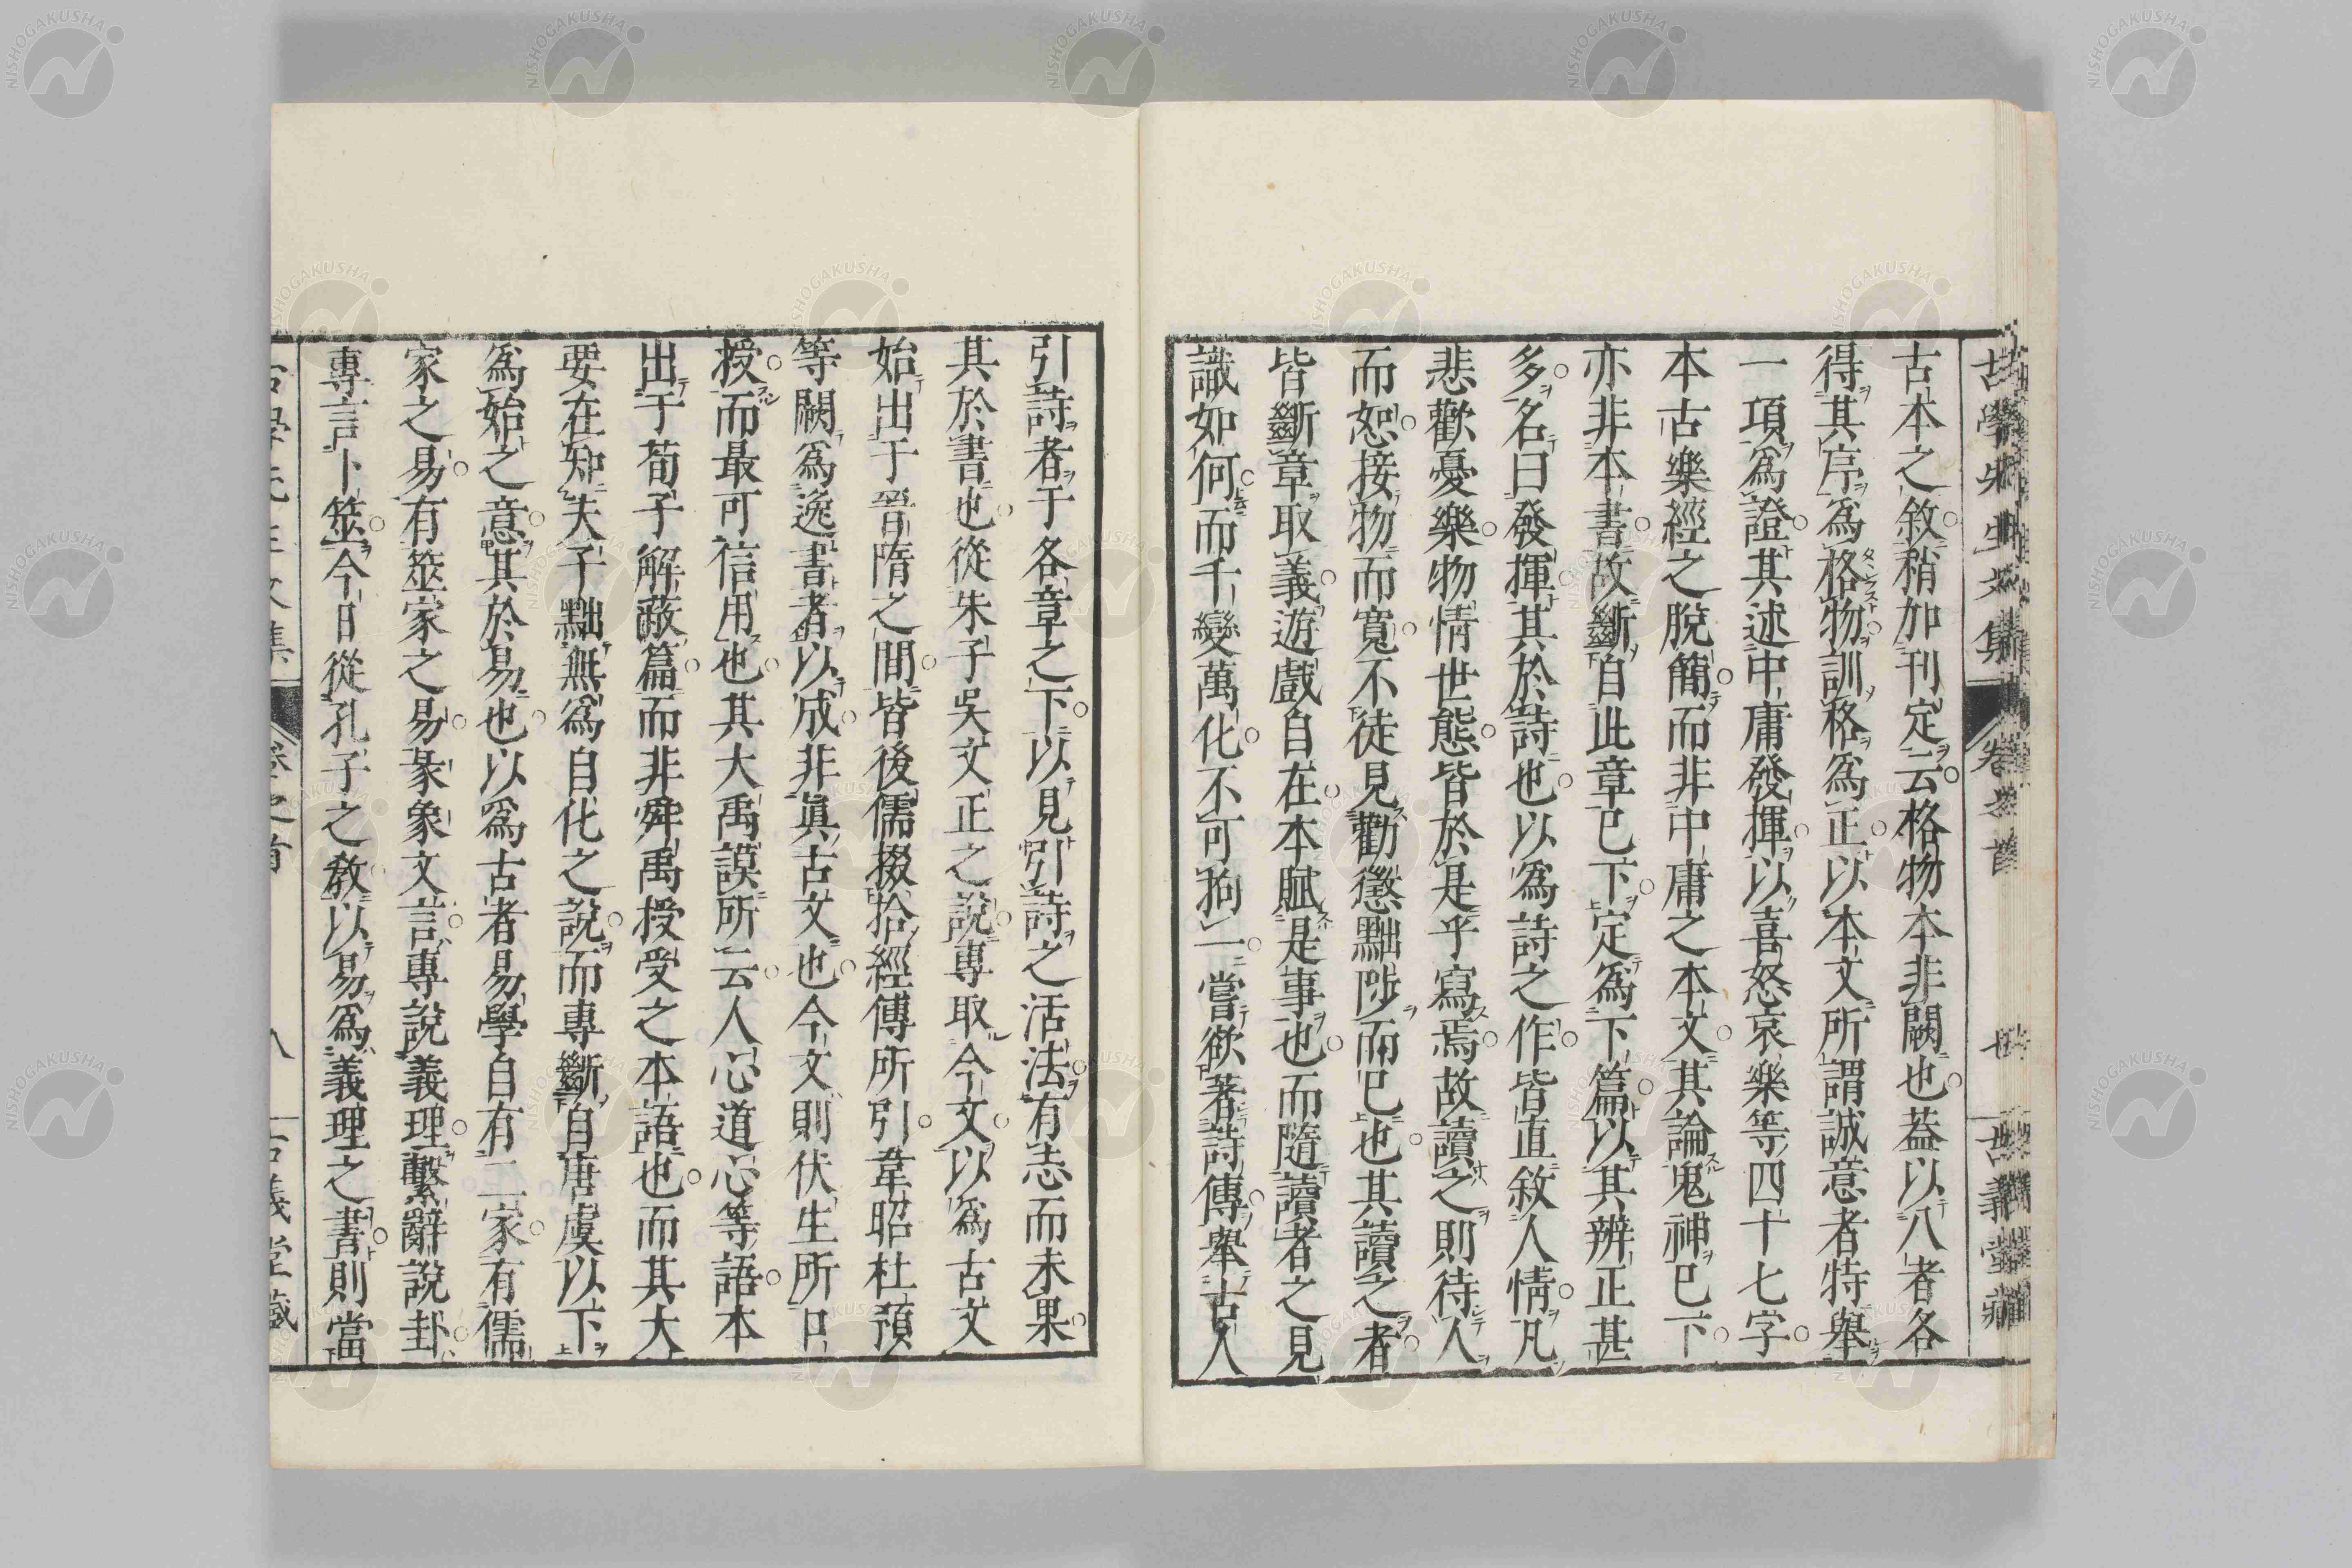 古本之敘稍加刊定云格物本非闕也蓋以八者各
得其序爲格物訓格爲正以本文所謂誠意者特舉
一項爲證其述中庸發揮以喜怒哀樂等四十七字
本古樂經之脫簡而非中庸之本文其論鬼神已下
亦非本書故斷自此章已下定爲下篇以其辨正甚
多名曰發揮其於詩也以爲詩之作皆直敘人情凡
悲歡憂樂物情世態皆於是乎寫焉故讀之則待人
而恕接物而寬不徒見勸懲黜陟而已也其讀之者
皆斷章取義遊戲自在本賦是事也而隨讀者之見
識如何而千變萬化不可拘一嘗欲著詩傳舉古人
引詩者于各章之下以見引詩之活法有志而未果
其於書也從朱子吳文正之說專取今文以爲古文
始出于晉隋之間皆後儒掇拾經傳所引韋昭杜預
等闕爲逸書者以成非眞古文也今文則伏生所口
授而最可信用也其大禹謨所云人心道心等語本
出于荀子解蔽篇而非舜禹授受之本語也而其大
要在知夫子黜無爲自化之說而專斷自唐虞以下
爲始之意其於易也以爲古者易學自有二家有儒
家之易有筮家之易彖象文言專說義理繫辭說卦
專言卜筮今日從孔子之教以易爲義理之書則當
古學先生文集 卷之首 八 古義堂藏
NISHOGAKUSHA